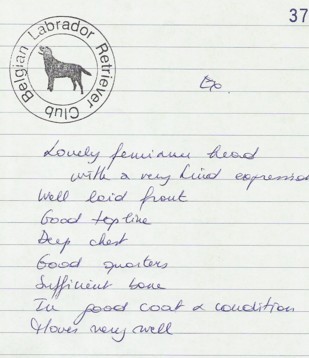 Belgian Labrador Retriever Club
37
Lovely feminine head
with a very kind expression
Well laid front
Good topline
Deep chest
Good quarters
Sufficient bone
In good coat & condition
Moves very well